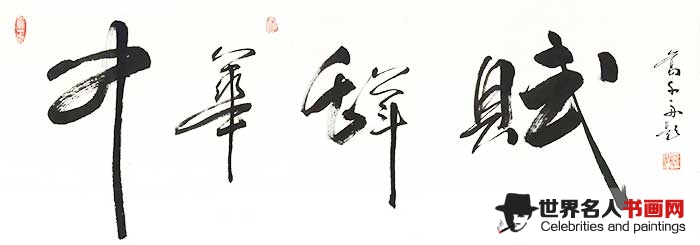 中華辞賦
世界名人书画网
Celebrities and paintings